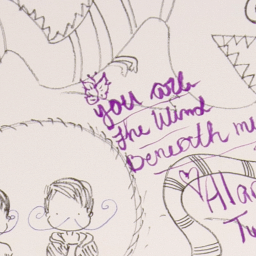 you are
the wind
Beneath my